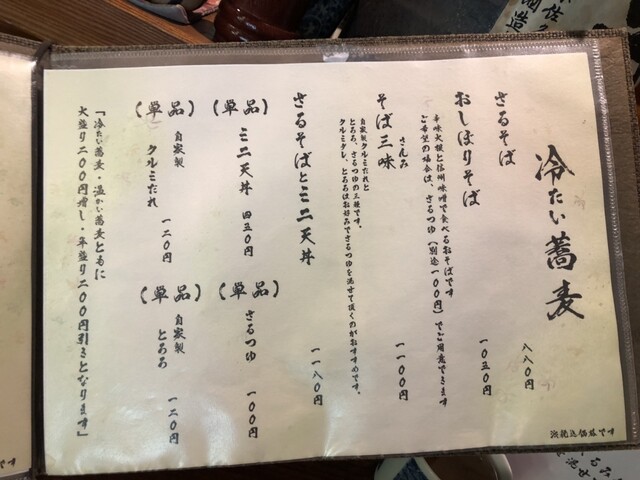 冷たい蕎麦
ざるそば 八八〇円
おしぼりそば 一〇五〇円
辛味大根と信州味噌で食べるおそばです
ご希望の場合は、ざるつゆ(別途一〇〇円)でご用意できます
さんみ
そば三味 一一〇〇円
自家製クルミだれと
とろろ、ざるつゆの三種です。
クルミダレ、とろろはお好みでざるつゆを混ぜて頂くのがおすすめです。
ざるそばとミニ天丼 一一八〇円
(単品)
ミニ天丼 四五〇円
(単品)
ざるつゆ 一〇〇円
(単品)
自家製
クルミだれ 一二〇円
(単品)
自家製
とろろ 一二〇円
「冷たい蕎麦・温かい蕎麦ともに
大盛り二〇〇円増し・半盛り二〇〇円引きとなります」
税込価格です